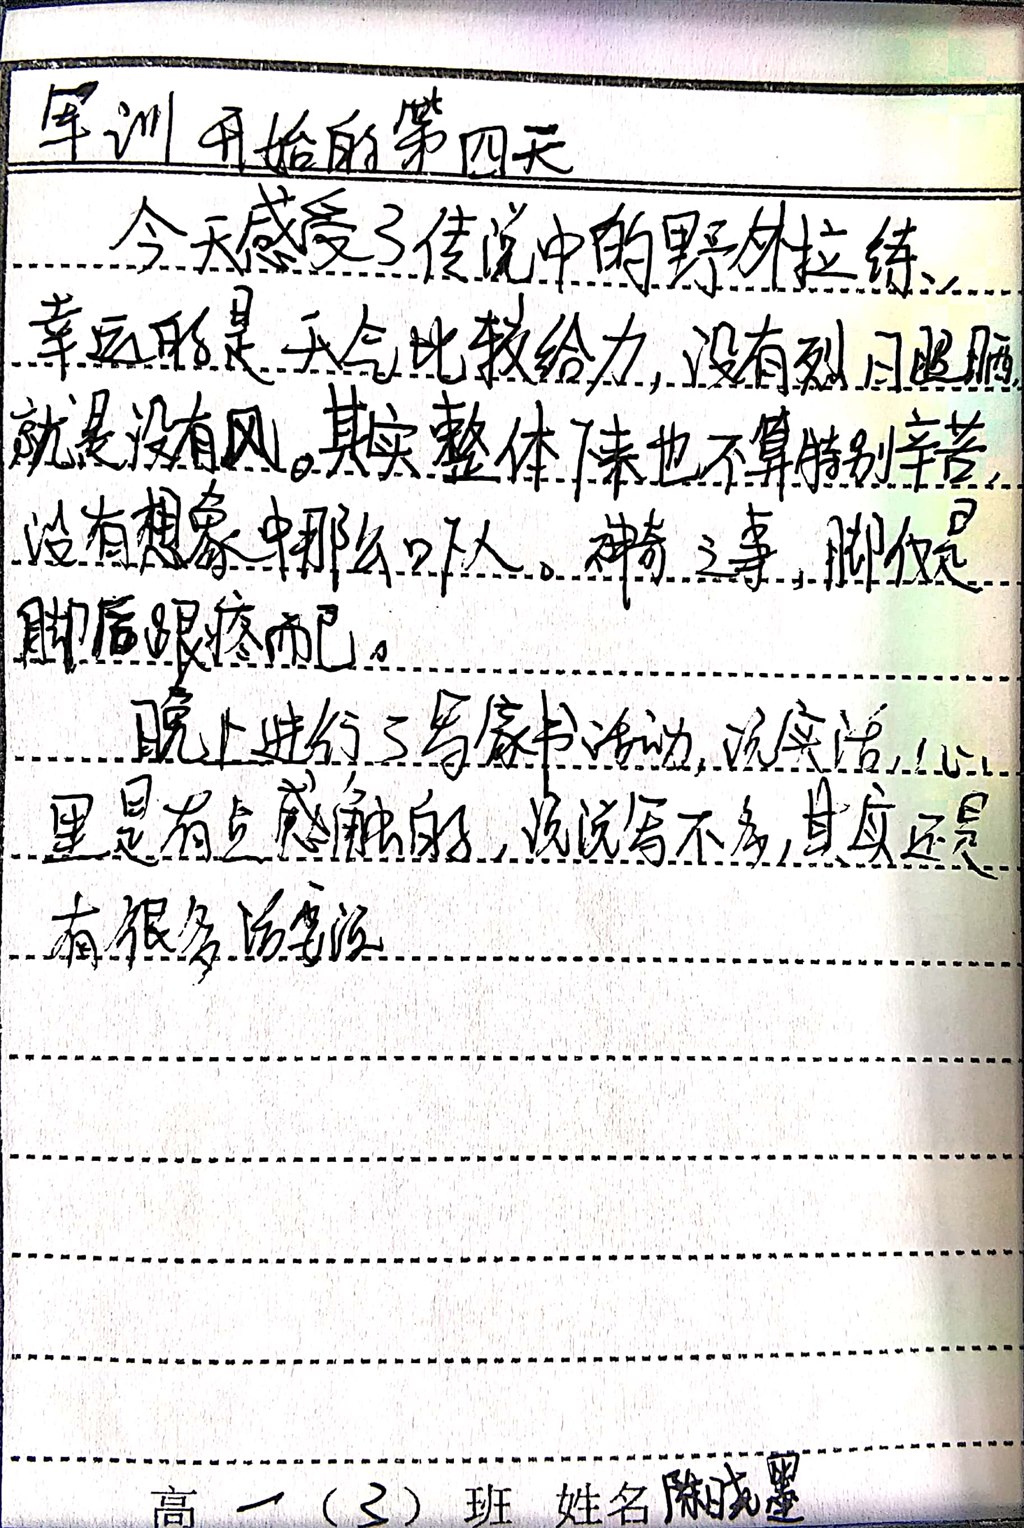 军训开始的第四天
今天感受了传说中的野外拉练、
幸运的是天气比较给力,没有烈日照晒,
就是没有风。其实整体下来也不算特别辛苦,
没有想象中那么吓人。神奇之事,脚仅是
脚后跟疼而已。
晚上进行了写家书活动,说实话,心
里是有点感触的,说说写不多,其实还是
有很多话要说
高一(3)班 姓名陈晓墨